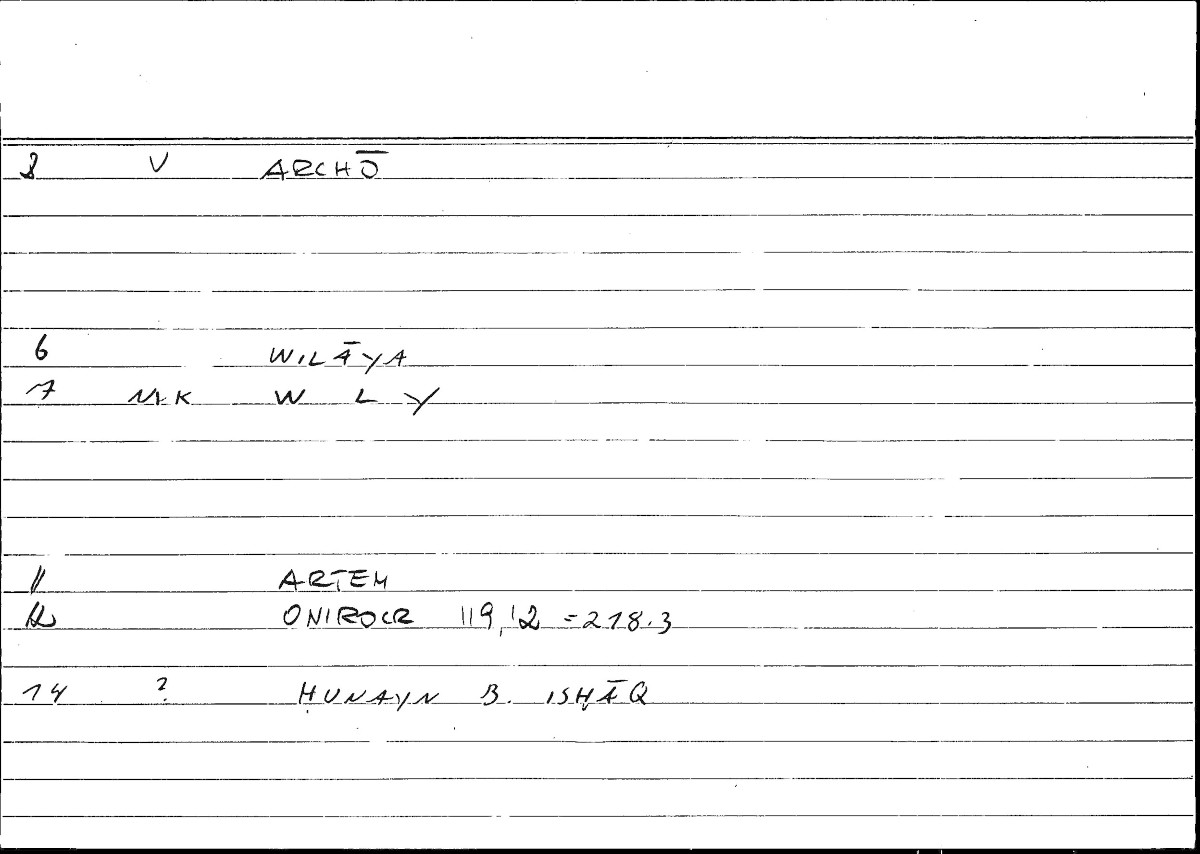 8 V ARCHŌ
6 WILĀYA
7 NLK W L Y
11 ARTEM
12 ONIROCR 119,12 = 218.3
14 ? ḤUNAYN B. ISḤĀQ